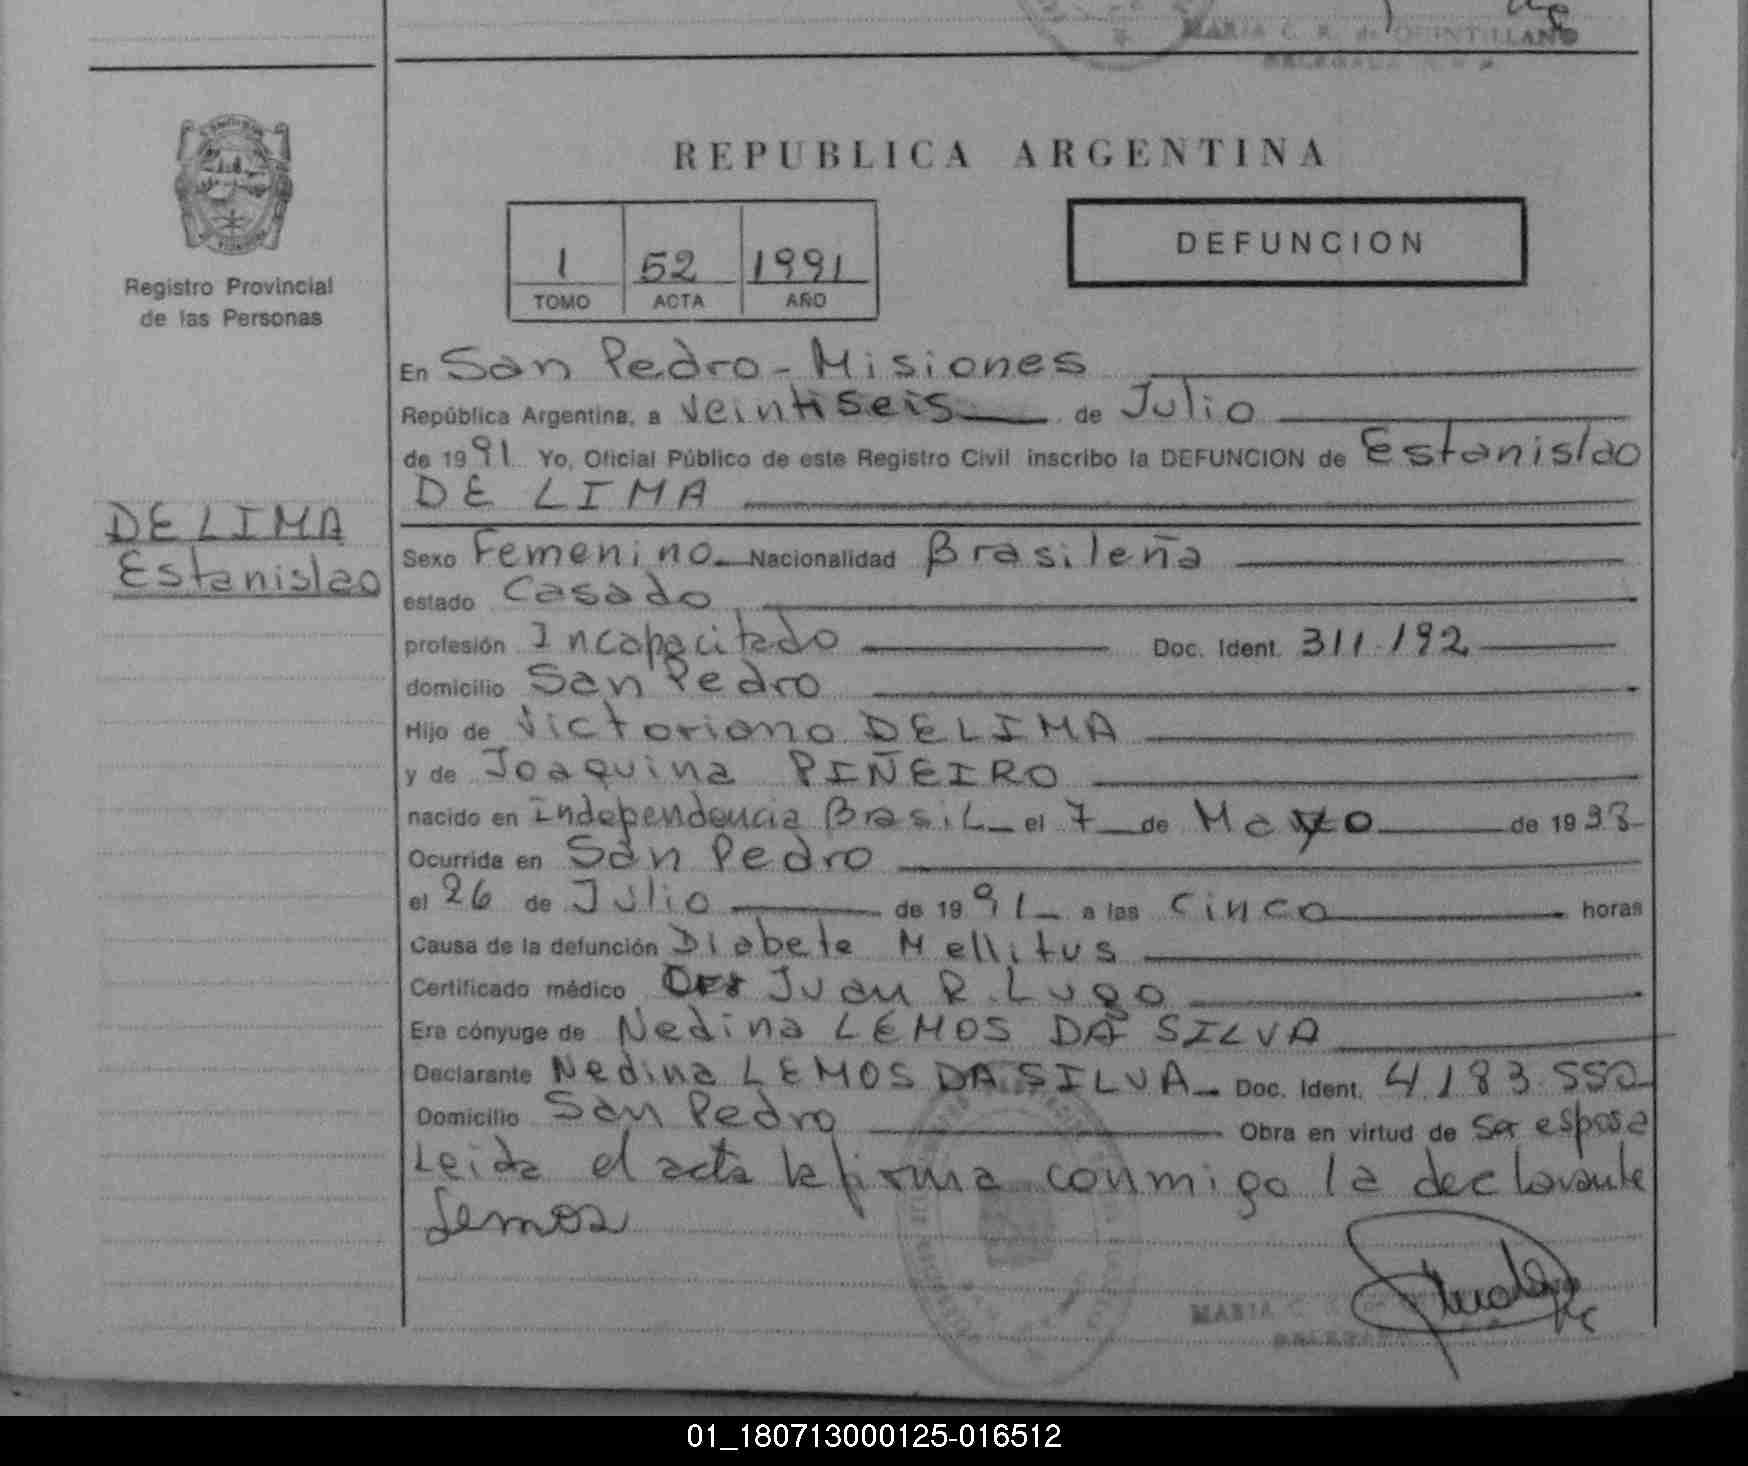 MARIA C. R. de QUINTILLANO
REPUBLICA ARGENTINA
1 52 1991
TOMO ACTA AÑO
DEFUNCION
Registro Provincial
de las Personas
En San Pedro - Misiones
República Argentina, a veintiseis de Julio
de 1991 Yo, Oficial Público de este Registro Civil inscribo la DEFUNCION de Estanislao
DE LIMA
DE LIMA
Estanislao
Sexo Femenino Nacionalidad Brasileña
estado Casado
profesión Incapacitado Doc. Ident. 311.192
domicilio San Pedro
Hijo de Victoriano DE LIMA
y de Joaquina PIÑEIRO
nacido en Independencia Brasil el 7 de Mayo de 1933
Ocurrida en San Pedro
el 26 de Julio de 1991 a las Cinco horas
Causa de la defunción Diabete Mellitus
Certificado médico Juan R. Lugo
Era cónyuge de Nedina LEMOS DA SILVA
Declarante Nedina LEMOS DA SILVA Doc. Ident. 4.183.552
Domicilio San Pedro Obra en virtud de Ser esposa
Leida el acta la firma conmigo la declarante
Lemos
MARIA C.
01_180713000125-016512